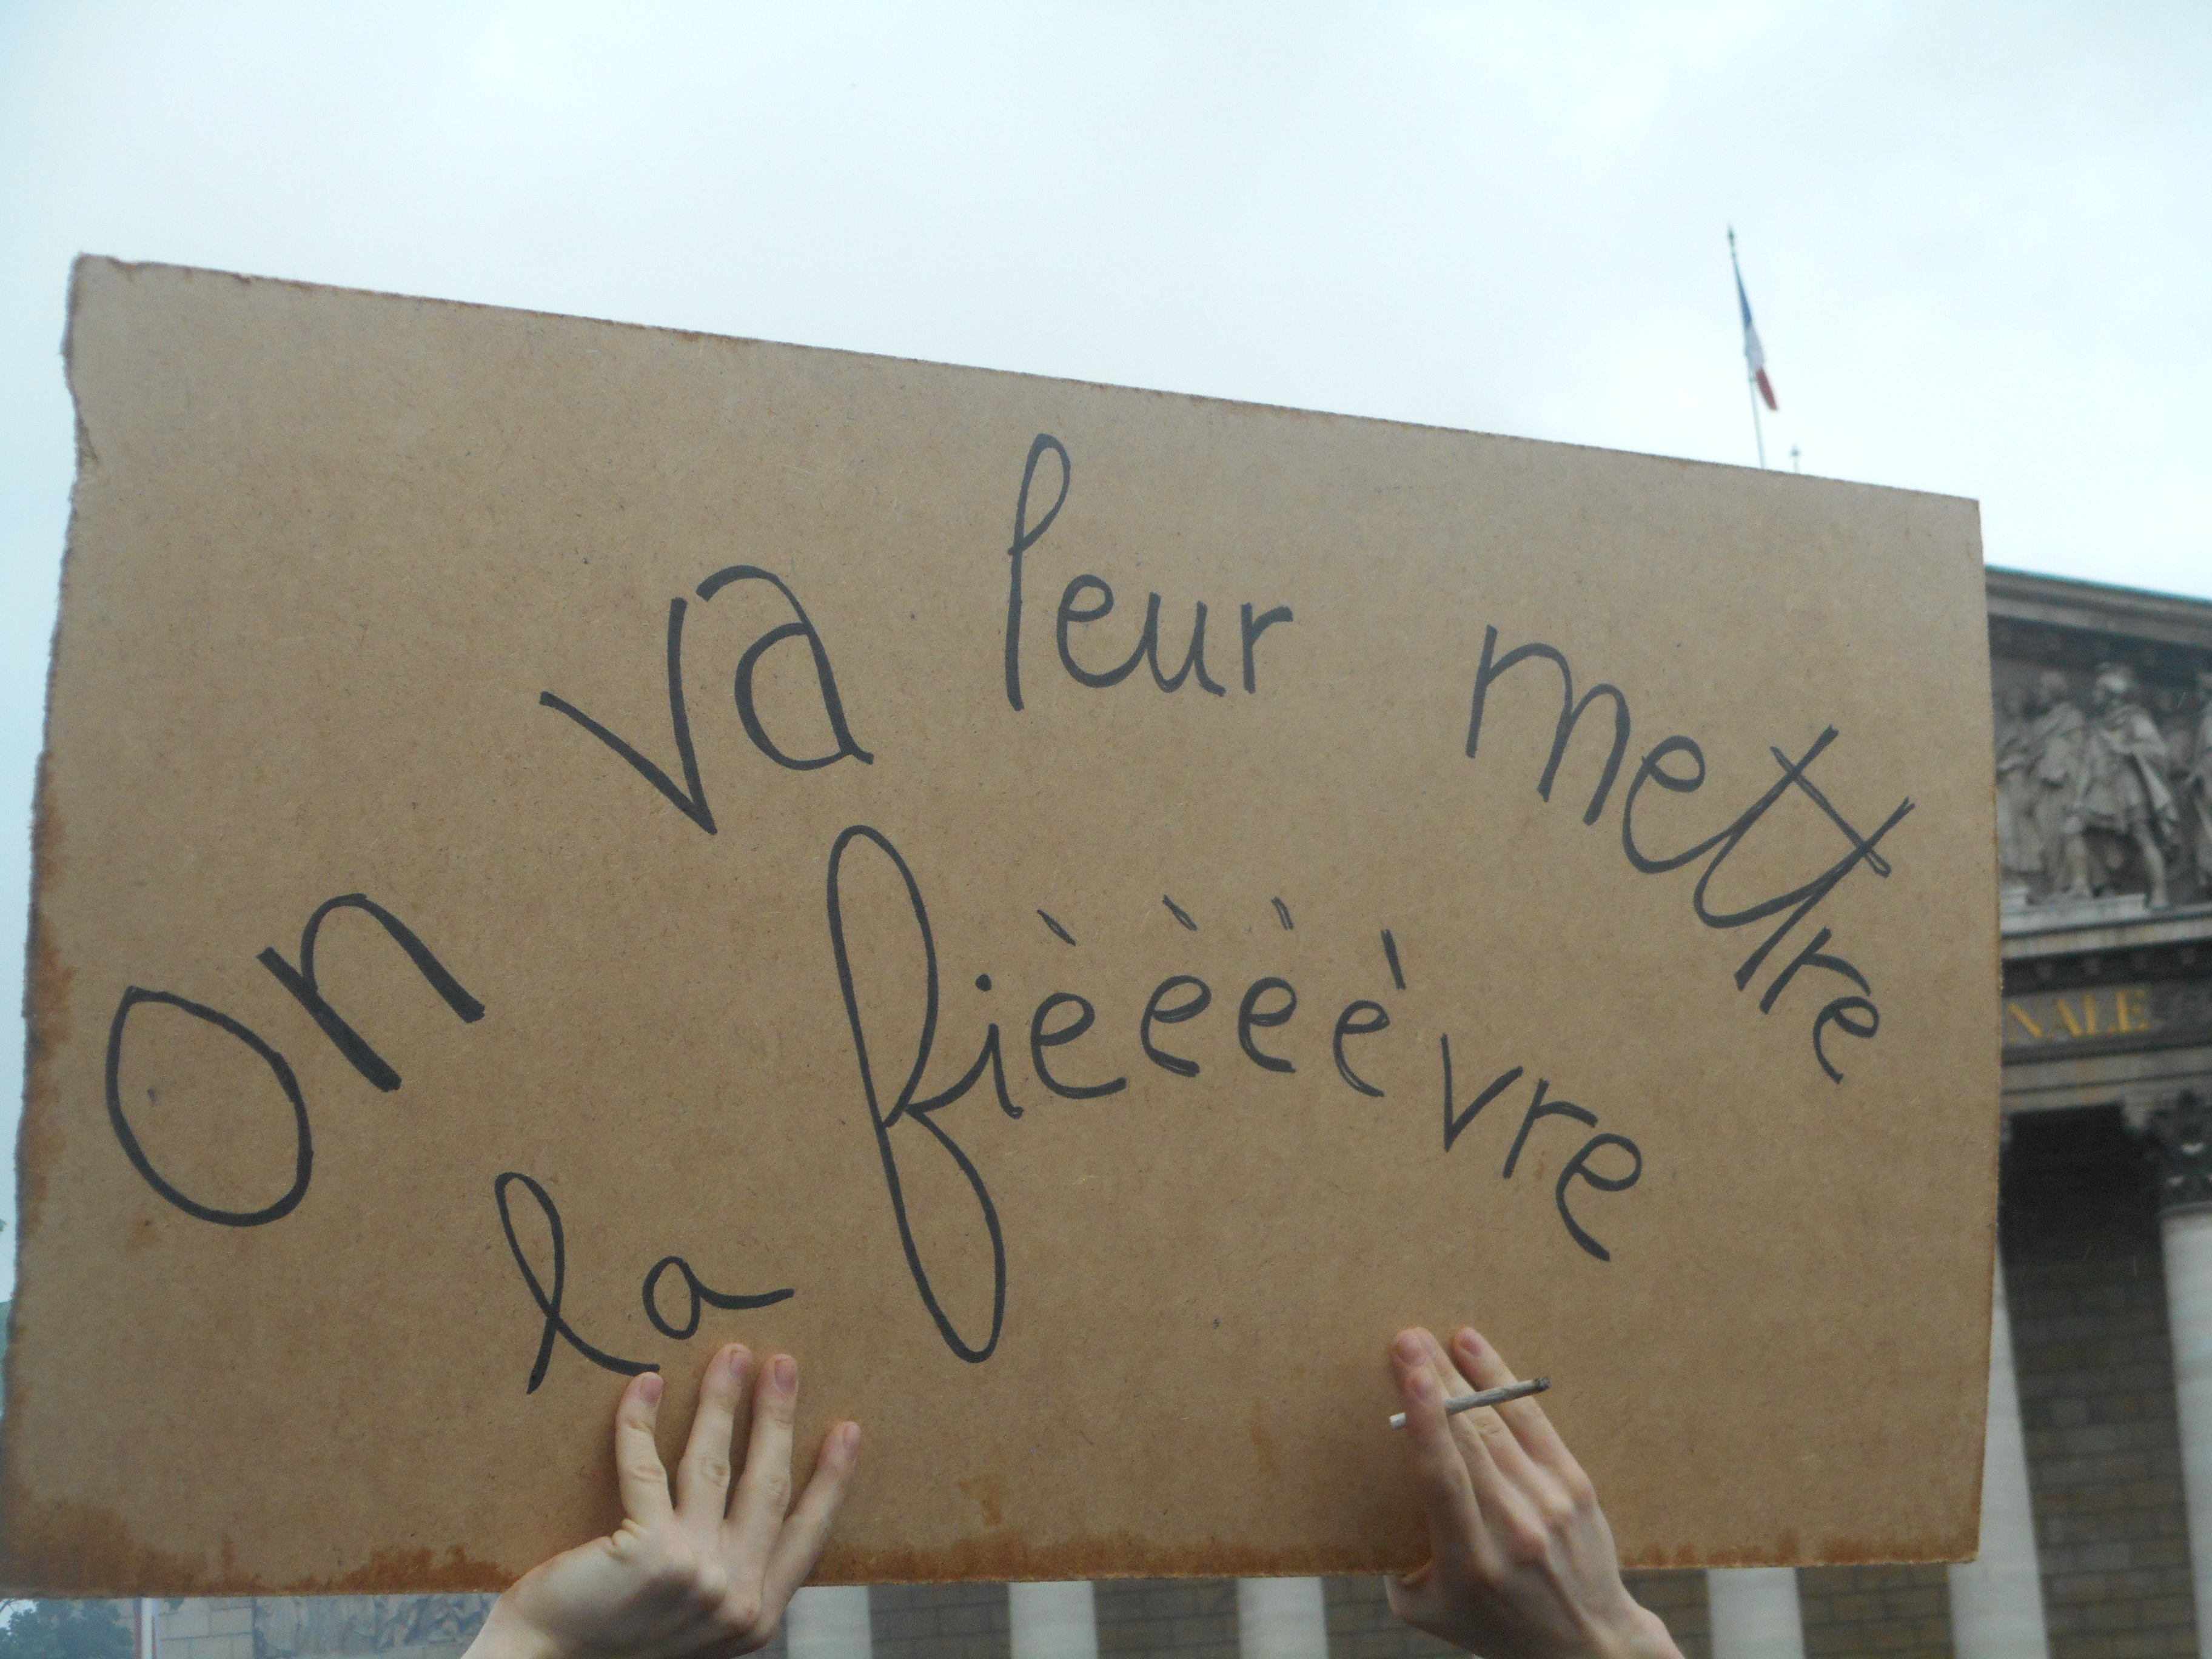 On va leur mettre
la fièèèèvre
NALE